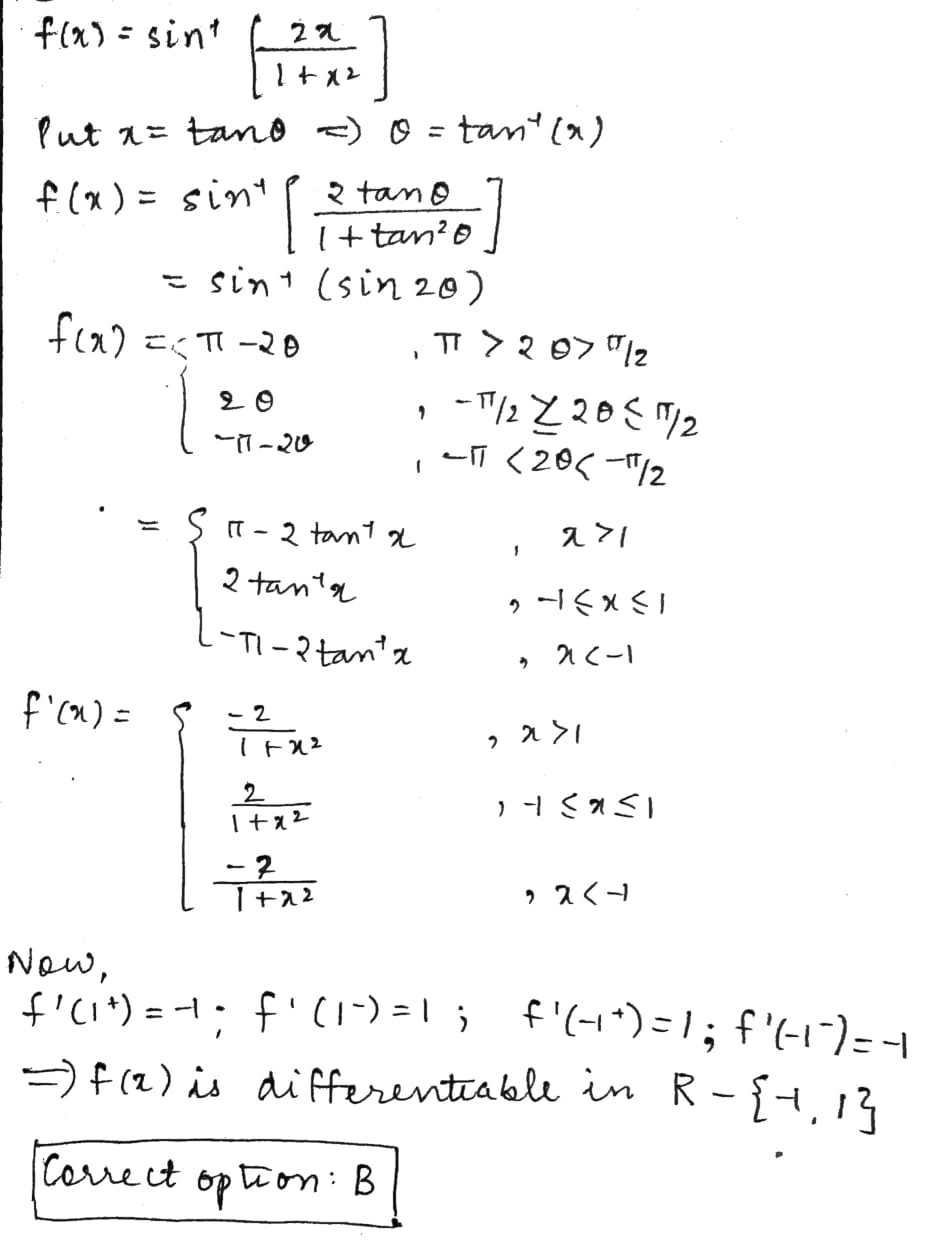 f(x) = sin⁻¹ [ 2x / 1 + x² ]
Put x = tanθ ⇒ θ = tan⁻¹(x)
f(x) = sin⁻¹ [ 2 tanθ / 1 + tan²θ ]
= sin⁻¹ (sin 2θ)
f(x) = { π - 2θ , π > 2θ > π/2
2θ , -π/2 ≥ 2θ ≤ π/2
-π - 2θ , -π < 2θ < -π/2
= { π - 2 tan⁻¹ x , x > 1
2 tan⁻¹ x , -1 ≤ x ≤ 1
-π - 2 tan⁻¹ x , x < -1
f'(x) = { -2 / 1 + x² , x > 1
2 / 1 + x² , -1 ≤ x ≤ 1
-2 / 1 + x² , x < -1
Now,
f'(1⁺) = -1 ; f'(1⁻) = 1 ; f'(-1⁺) = 1 ; f'(-1⁻) = -1
⇒ f(x) is differentiable in R - {-1, 1}
Correct option : B